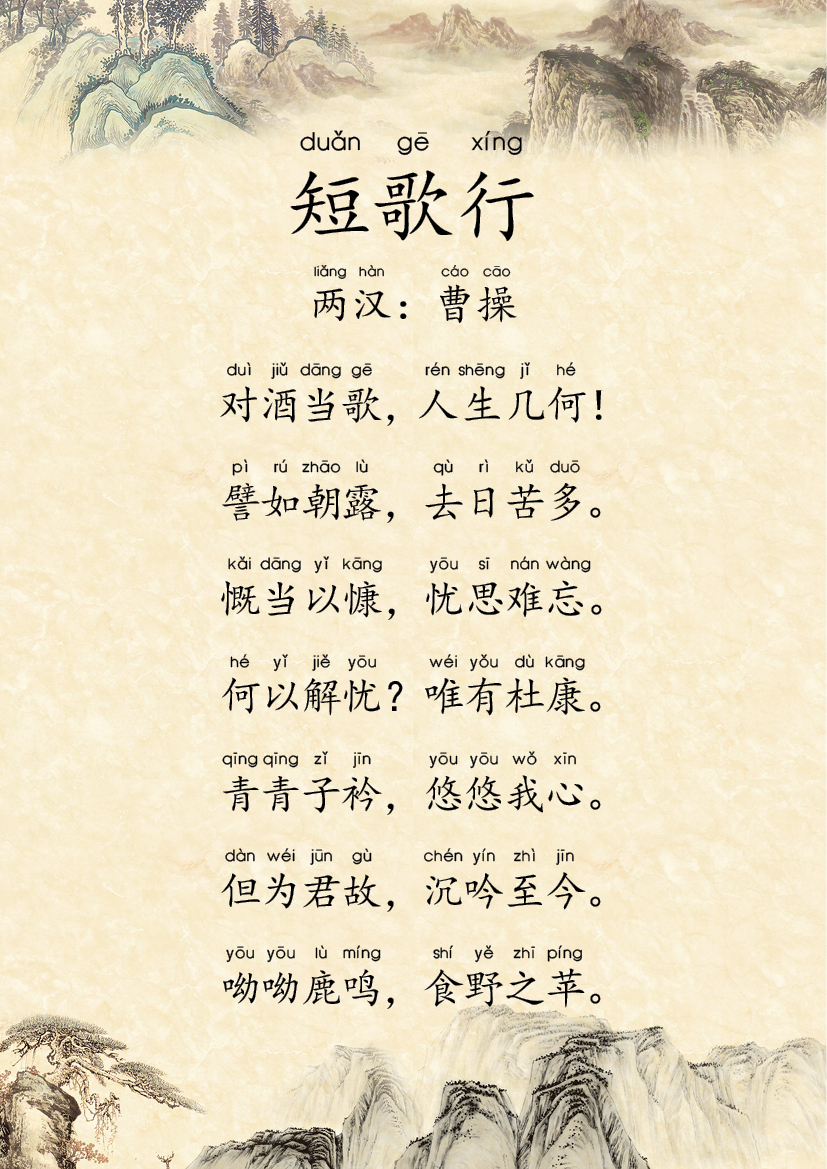 duǎn gē xíng
短歌行
liǎng hàn cáo cāo
两汉：曹操
duì jiǔ dāng gē rén shēng jǐ hé
对酒当歌，人生几何！
pì rú zhāo lù qù rì kǔ duō
譬如朝露，去日苦多。
kǎi dāng yǐ kāng yōu sī nán wàng
慨当以慷，忧思难忘。
hé yǐ jiě yōu wéi yǒu dù kāng
何以解忧？唯有杜康。
qīng qīng zǐ jīn yōu yōu wǒ xīn
青青子衿，悠悠我心。
dàn wéi jūn gù chén yín zhì jīn
但为君故，沉吟至今。
yōu yōu lù míng shí yě zhī píng
呦呦鹿鸣，食野之苹。